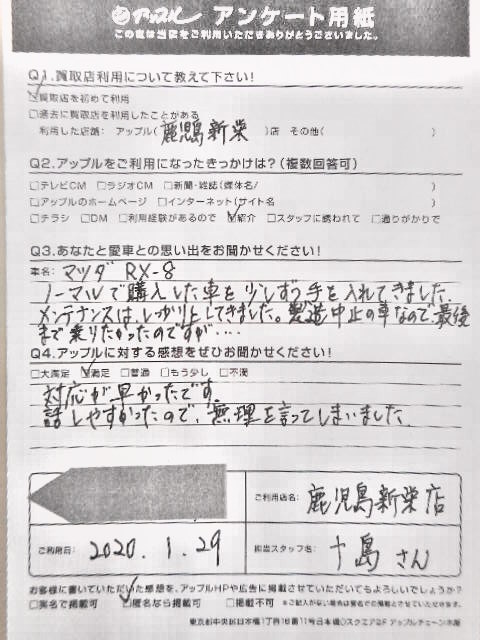 アップル アンケート用紙
この度は当店をご利用いただきありがとうございました。
Q1.買取店利用について教えて下さい!
☑買取店を初めて利用
□過去に買取店を利用したことがある
利用した店舗: アップル( 鹿児島新栄 )店 その他( )
Q2.アップルをご利用になったきっかけは?(複数回答可)
□テレビCM □ラジオCM □新聞・雑誌(媒体名/ )
□アップルのホームページ □インターネット(サイト名 )
□チラシ □DM □利用経験があるので ☑紹介 □スタッフに誘われて □通りがかりで
Q3.あなたと愛車との思い出をお聞かせください!
車名: マツダ RX-8
ノーマルで購入した車を少しずつ手を入れてきました。
メンテナンスは、しっかりしてきました。製造中止の車なので、最後
まで乗りたかったのですが....
Q4.アップルに対する感想をぜひお聞かせください!
□大満足 ☑満足 □普通 □もう少し □不満
対応が早かったです。
話しやすかったので、無理を言ってしまいました。
ご利用店名: 鹿児島新栄店
ご利用日: 2020.1.29
担当スタッフ名: 十島さん
お客様に書いていただいた感想を、アップルHPや広告に掲載させていただいてもよろしいでしょうか?
□実名で掲載可 ☑匿名なら掲載可 □掲載不可 ※ご記入がない場合は匿名での掲載とさせていただきます。
東京都中央区日本橋1丁目16番11号日本橋Dスクエア2F アップルチェーン本部